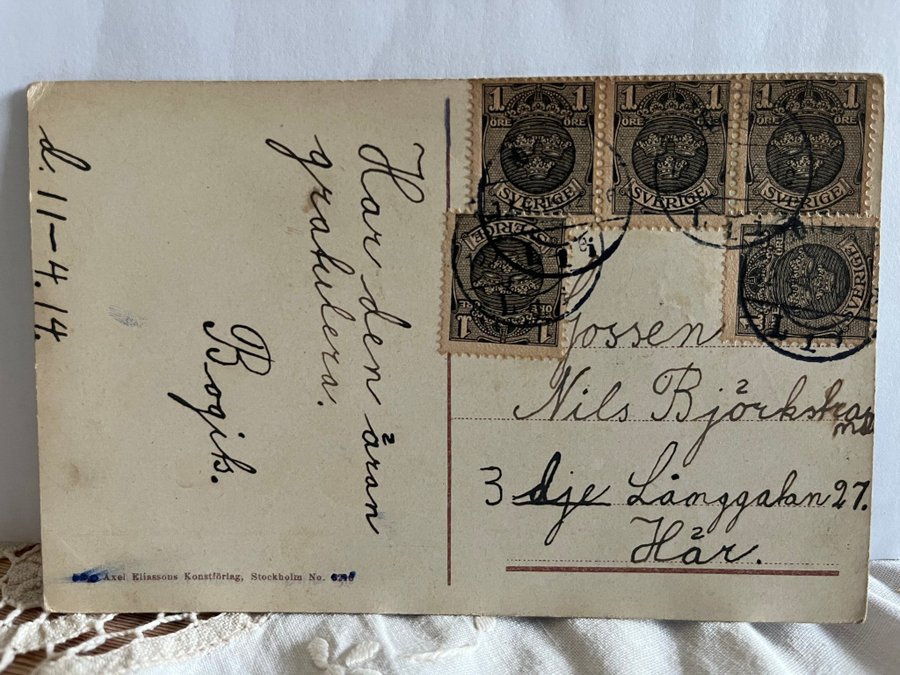 d. 11-4.14.
Har den äran
gratulera.
Bogik.
Axel Eliassons Konstförlag, Stockholm No.
1 1
ÖRE ÖRE
SVERIGE
1 1
ÖRE ÖRE
SVERIGE
1 1
ÖRE ÖRE
SVERIGE
SVERIGE
ÖRE
1
SVERIGE
1
Gossen
Nils Björkstrand
3 dje Långgatan 27.
Här.